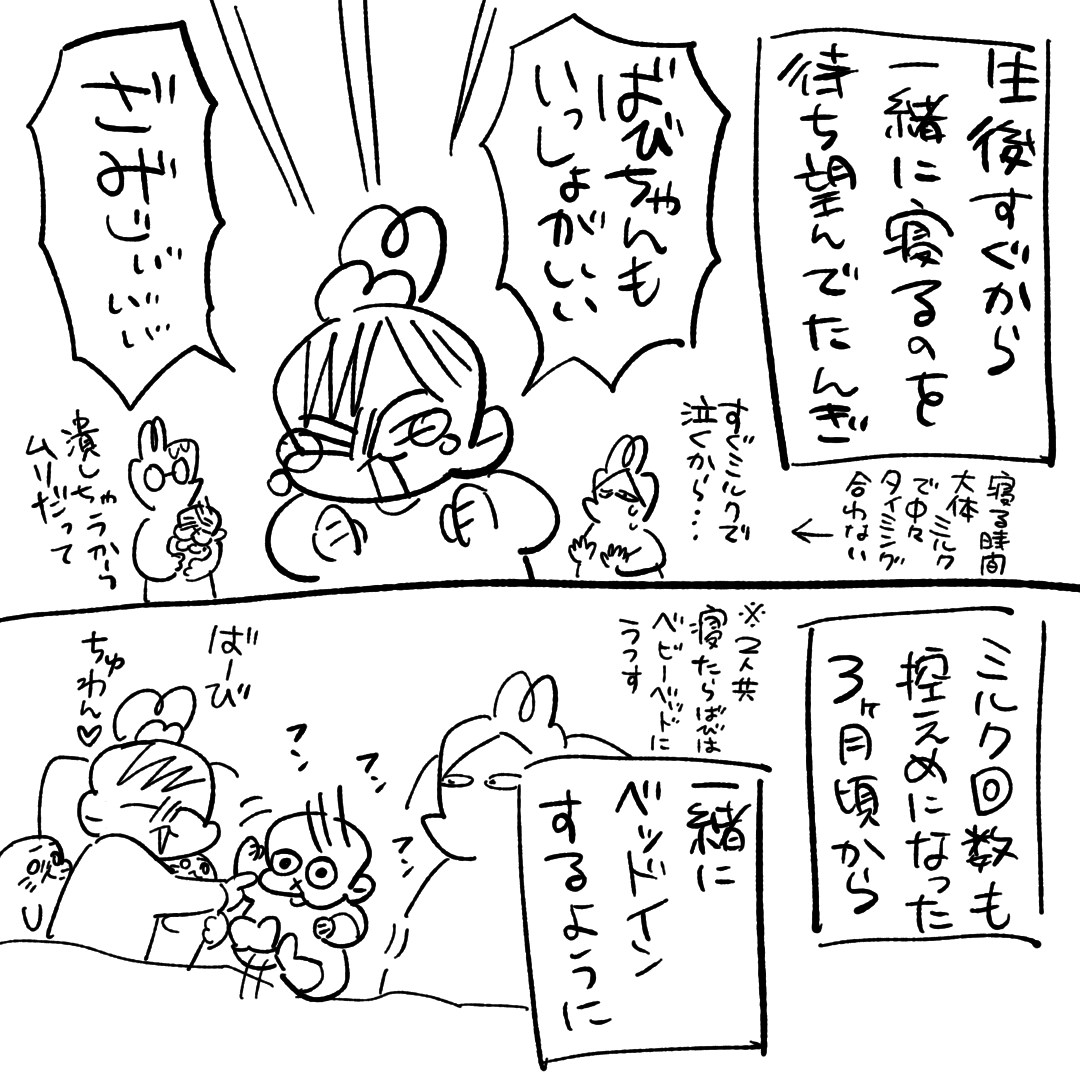 生後すぐから
一緒に寝るのを
待ち望んでたんぎ
ばびちゃんも
いっしょがいい
すぐミルクで
泣くから・・・
寝る時間
大体ミルク
で中々
タイミング
合わない
←
潰しちゃうから
ムリだって
ミルク回数も
控えめになった
3ヶ月頃から
※2人共
寝たらばびは
ベビーベッドに
うつす
一緒に
ベッドイン
するように
ばーび
ちゅわん♡